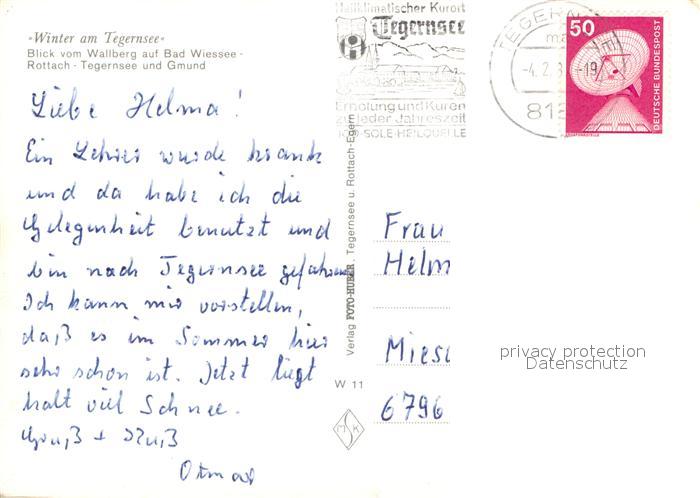 »Winter am Tegernsee«
Blick vom Wallberg auf Bad Wiessee -
Rottach - Tegernsee und Gmund
Liebe Helma!
Ein Lehrer wurde krank
und da habe ich die
Gelegenheit benutzt und
bin nach Tegernsee gefahren
Ich kann mir vorstellen,
daß es im Sommer hier
sehr schön ist. Jetzt liegt
halt viel Schnee.
Gruß + Kuß
Otmar
Verlag FOTO-HUBER, Tegernsee u. Rottach-Egern
W 11
MSK
Heilklimatischer Kurort
Tegernsee
Erholung und Kuren
zu jeder Jahreszeit
JOD-SOLE-HEILQUELLE
TEGERN
-4.2.8 -19
818
50
DEUTSCHE BUNDESPOST
Frau
Helm
Miesi
6796
privacy protection
Datenschutz